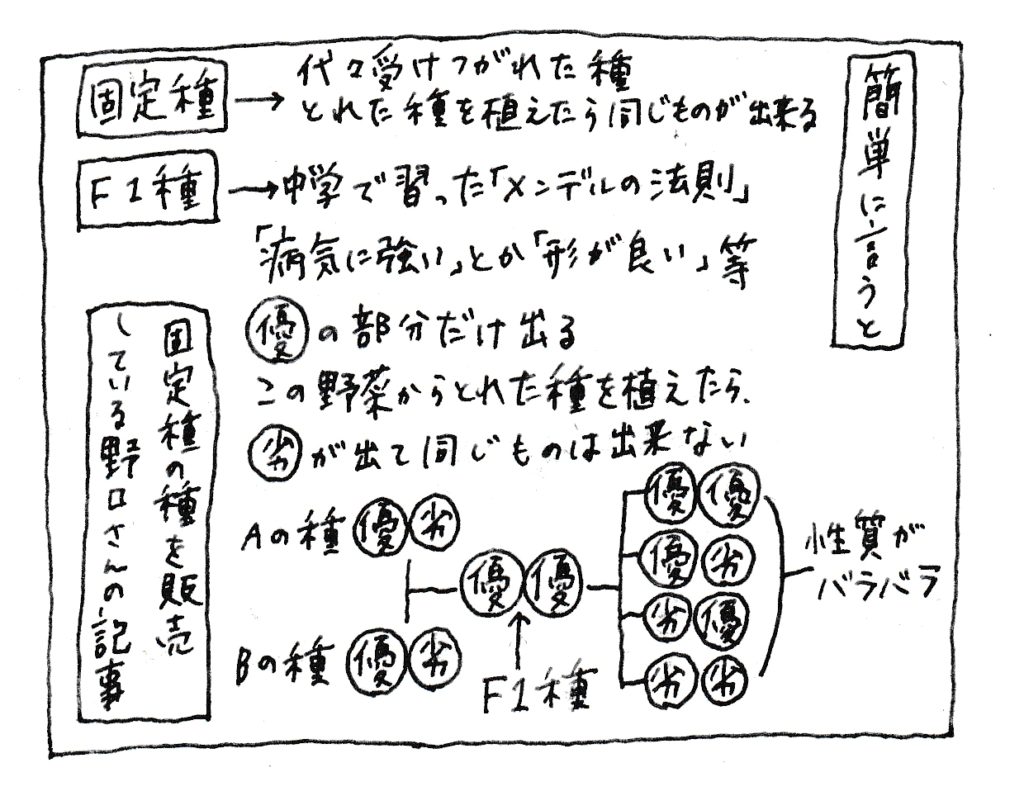 簡単に言うと
固定種 → 代々受けつがれた種
とれた種を植えたら同じものが出来る
F1種 → 中学で習った「メンデルの法則」
「病気に強い」とか「形が良い」等
優の部分だけ出る
この野菜からとれた種を植えたら、
劣が出て同じものは出来ない
Aの種 優 劣
Bの種 優 劣
優 優
F1種
優 優
優 劣
劣 優
劣 劣
性質が
バラバラ
固定種の種を販売
している野口さんの記事